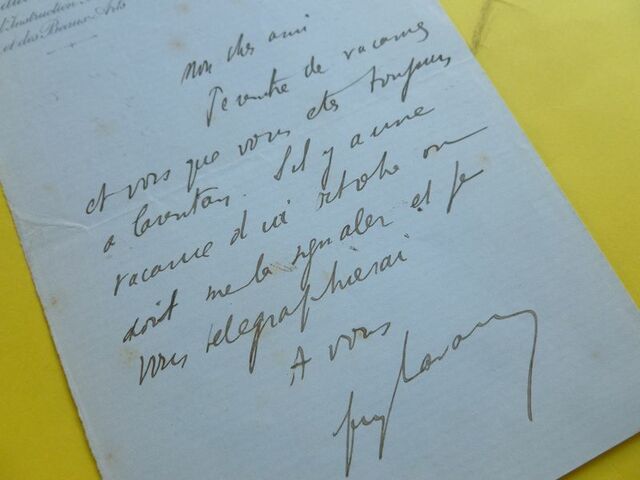 d'Instruction
et des Beaux-Arts
Mon cher ami
Je rentre de vacances
et vois que vous etes toujours
a Carentan. S'il y a une
vacance d'ici octobre on
doit me la signaler et je
vous telegraphierai
A vous